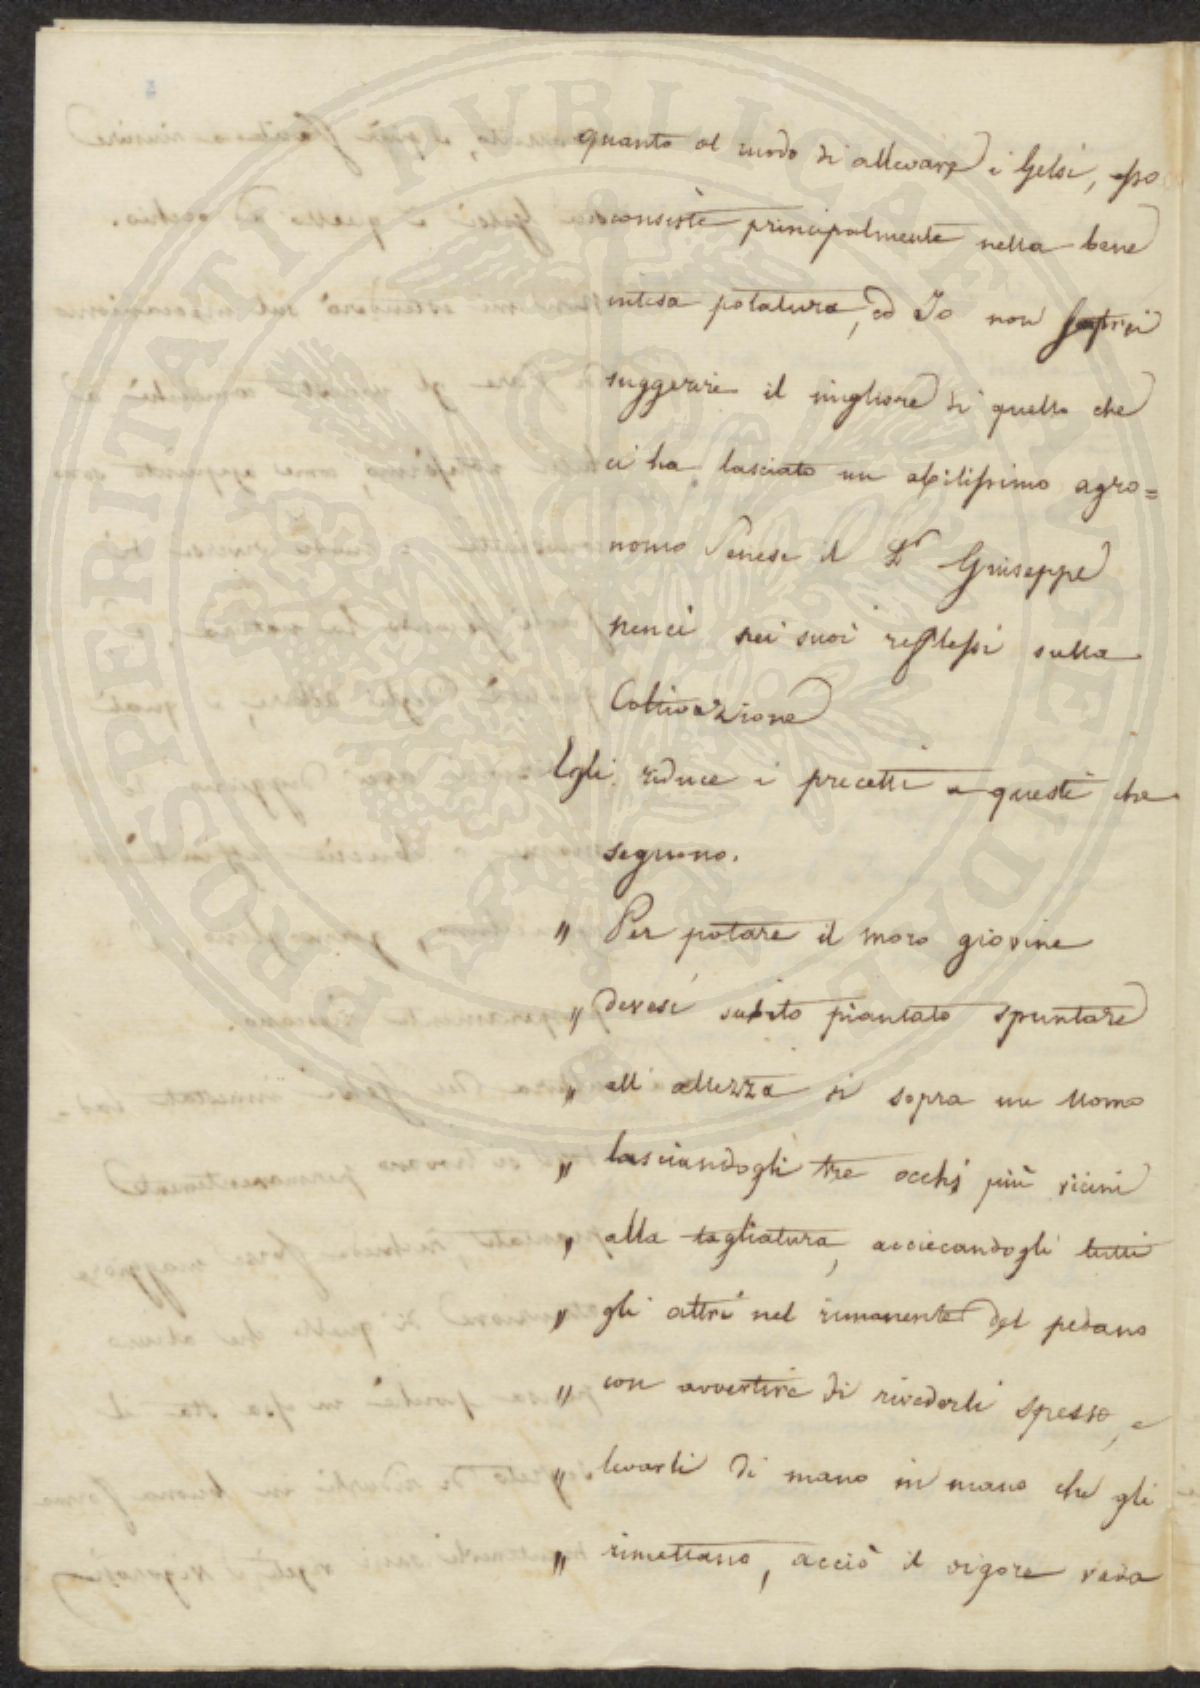 quanto al modo di allevare i Gelsi, esso
consiste principalmente nella bene
intesa potatura, ed Io non saprei
suggerire il migliore di quello che
ci ha lasciato un abilissimo agro=
nomo Senese il Dr Giuseppe
Nenci nei suoi reflessi sulla
Coltivazione
Egli riduce i precetti a questi che
seguono.
" Per potare il moro giovine
" devesi subito piantato spuntare
" all altezza di sopra un Uomo
" lasciandogli tre occhi più vicini
" alla tagliatura, acciecandogli tutti
" gli altri nel rimanente del pedano
" con avvertire di rivederli spesso, e
" levarli di mano in mano che gli
" rimettano, acciò il vigore vada
PROSPERITATI PVBLICAE AVGENDAE